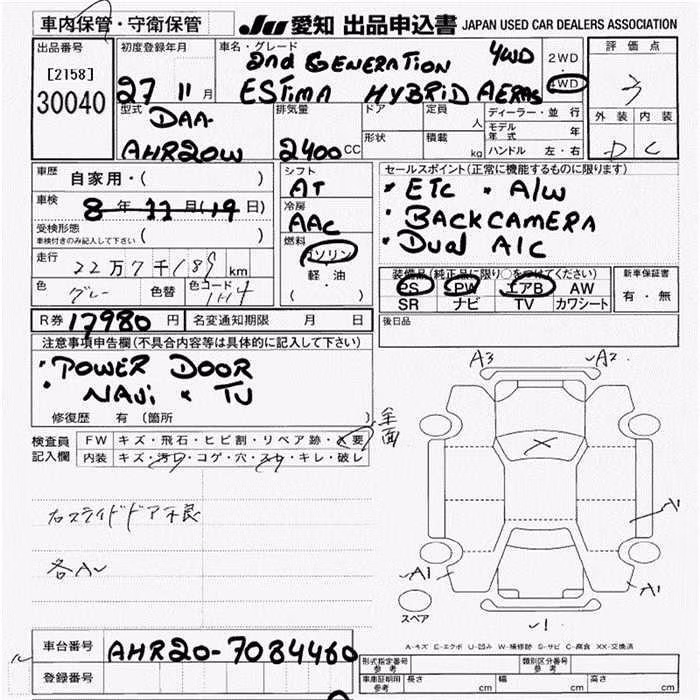 車内保管・守衛保管 JU 愛知 出品申込書 JAPAN USED CAR DEALERS ASSOCIATION
出品番号 初度登録年月 車名・グレード 2nd GENERATION 4WD 2WD 評価点
[2158] 27 11月 ESTIMA HYBRID AERAS 4WD 3
30040 型式 排気量 ドア 定員 人 ディーラー・並行 外装 内装
DAA- モデル年式 年
AHR20W 2400cc 形状 積載 kg ハンドル 左・右 D C
車歴 自家用・( ) シフト セールスポイント(正常に機能するものに限ります)
AT • ETC • A/W
車検 8年11月(19日) 冷房 • BACKCAMERA
受検形態 AAC • DUAL A/C
車検付きのみ記入して下さい ( ) 燃料
走行 22万7千187km ガソリン 装備品(純正品に限り○をつけてください) 新車保証書
色 グレー 色替 色コード 1H4 軽・油 PS PW エアB AW 有・無
( ) SR ナビ TV カワシート
R券 17980円 名変通知期限 月 日 後日品
注意事項申告欄(不具合内容等は具体的に記入して下さい)
• POWER DOOR A3 A2
• NAVi × TV
修復歴 有(箇所 )
検査員 FW キズ・飛石・ヒビ割・リペア跡・×要 全面
記入欄 内装 キズ・汚れ・コゲ・穴・スレ・キレ・破レ
右スライドドア不良 A1
各A〜 A1 A1
スペア 1
A-キズ E-エクボ U-凹み W-補修跡 S-サビ C-腐食 XX-交換済
車台番号 AHR20-7084460
形式指定番号 参考 類別区分番号 参考
登録番号 車庫証明用 参考 長さ cm 幅 cm 高さ cm